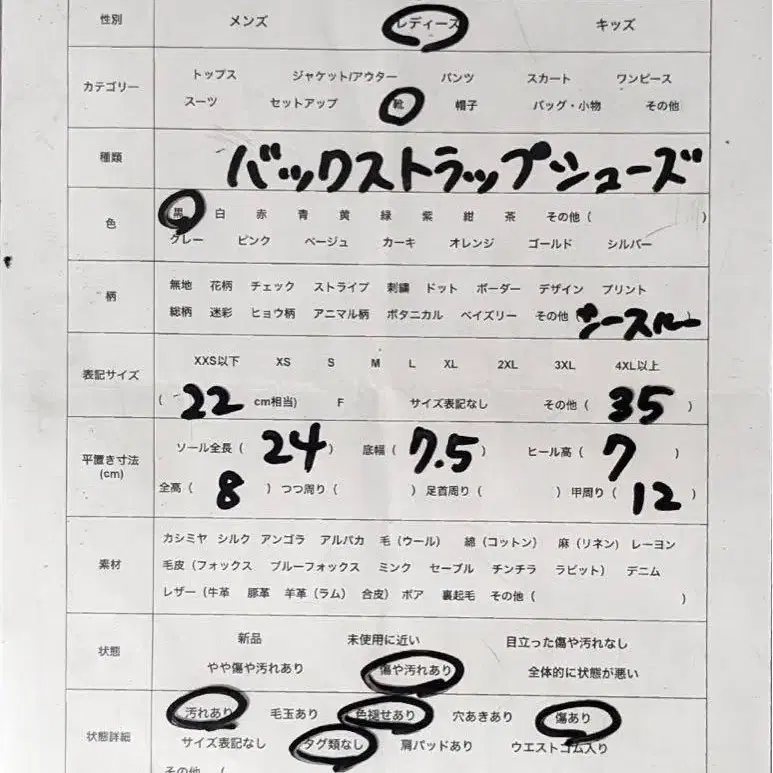 性別 メンズ レディース キッズ
カテゴリー
トップス ジャケット/アウター パンツ スカート ワンピース
スーツ セットアップ 靴 帽子 バッグ・小物 その他
種類 バックストラップシューズ
色
黒 白 赤 青 黄 緑 紫 紺 茶 その他 ( )
グレー ピンク ベージュ カーキ オレンジ ゴールド シルバー
柄
無地 花柄 チェック ストライプ 刺繍 ドット ボーダー デザイン プリント
総柄 迷彩 ヒョウ柄 アニマル柄 ボタニカル ペイズリー その他 (シースルー
表記サイズ
XXS以下 XS S M L XL 2XL 3XL 4XL以上
( 22 cm相当) F サイズ表記なし その他 ( 35 )
平置き寸法
(cm)
ソール全長 ( 24 ) 底幅 ( 7.5 ) ヒール高 ( 7 )
全高 ( 8 ) つつ周り ( ) 足首周り ( ) 甲周り ( 12 )
素材
カシミヤ シルク アンゴラ アルパカ 毛 (ウール) 綿 (コットン) 麻 (リネン) レーヨン
毛皮 (フォックス ブルーフォックス ミンク セーブル チンチラ ラビット) デニム
レザー (牛革 豚革 羊革 (ラム) 合皮) ボア 裏起毛 その他 ( )
状態
新品 未使用に近い 目立った傷や汚れなし
やや傷や汚れあり 傷や汚れあり 全体的に状態が悪い
状態詳細
汚れあり 毛玉あり 色褪せあり 穴あきあり 傷あり
サイズ表記なし タグ類なし 肩パッドあり ウエストゴム入り
その他 (